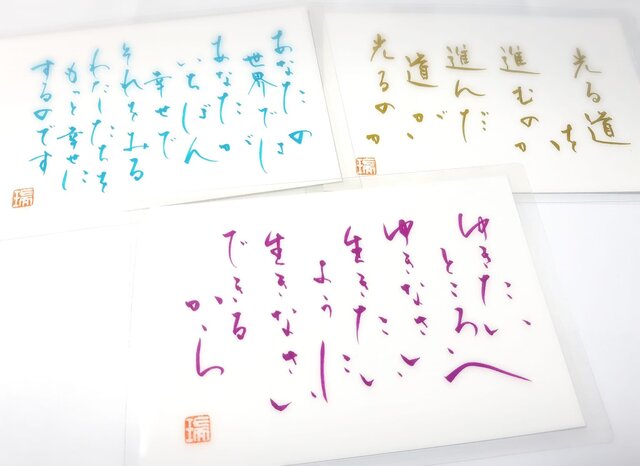 あなたの
世界では
あなたが
いちばん
幸せで
それをみる
わたしたちを
もっと幸せに
するのです
光る道を
進むのか
進んだ
道が
光るのか
ゆきたい
ところへ
ゆきなさい
生きたい
ように
生きなさい
できる
から